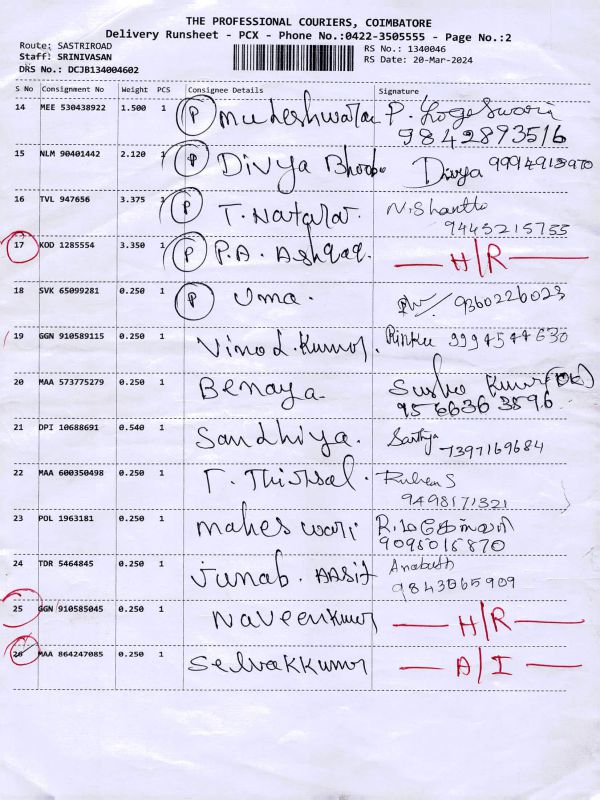 THE PROFESSIONAL COURIERS, COIMBATORE
Delivery Runsheet - PCX - Phone No.:0422-3505555 - Page No.:2
Route: SASTRIROAD RS No.: 1340046
Staff: SRINIVASAN RS Date: 20-Mar-2024
DRS No.: DCJB134004602
S No Consignment No Weight PCS Consignee Details Signature
14 MEE 530438922 1.500 1 P Muthu P. Logeswari
9842893516
15 NLM 90401442 2.120 1 P Divya Divya 9994913970
16 TVL 947656 3.375 1 P T. Natara N. Shantto
9445215755
17 KOD 1285554 3.350 1 P P.A. Ashqaq. H/R
18 SVK 65099281 0.250 1 P Uma. 9360226023
19 GGN 910589115 0.250 1 Vinod. Kumar. Rinku 9994544630
20 MAA 573775279 0.250 1 Benaya. Kumar
9566363596
21 DPI 10688691 0.540 1 Sandhiya. Sathya 7397169684
22 MAA 600350498 0.250 1 T. Ruban S
9498171321
23 POL 1963181 0.250 1 maheswari R. மகேஸ்வரி
9095015870
24 TDR 5464845 0.250 1 Junab. AASIF
9843065909
25 GGN 910585045 0.250 1 Naveenkumar H/R
26 MAA 864247085 0.250 1 Selvakkumar A/I